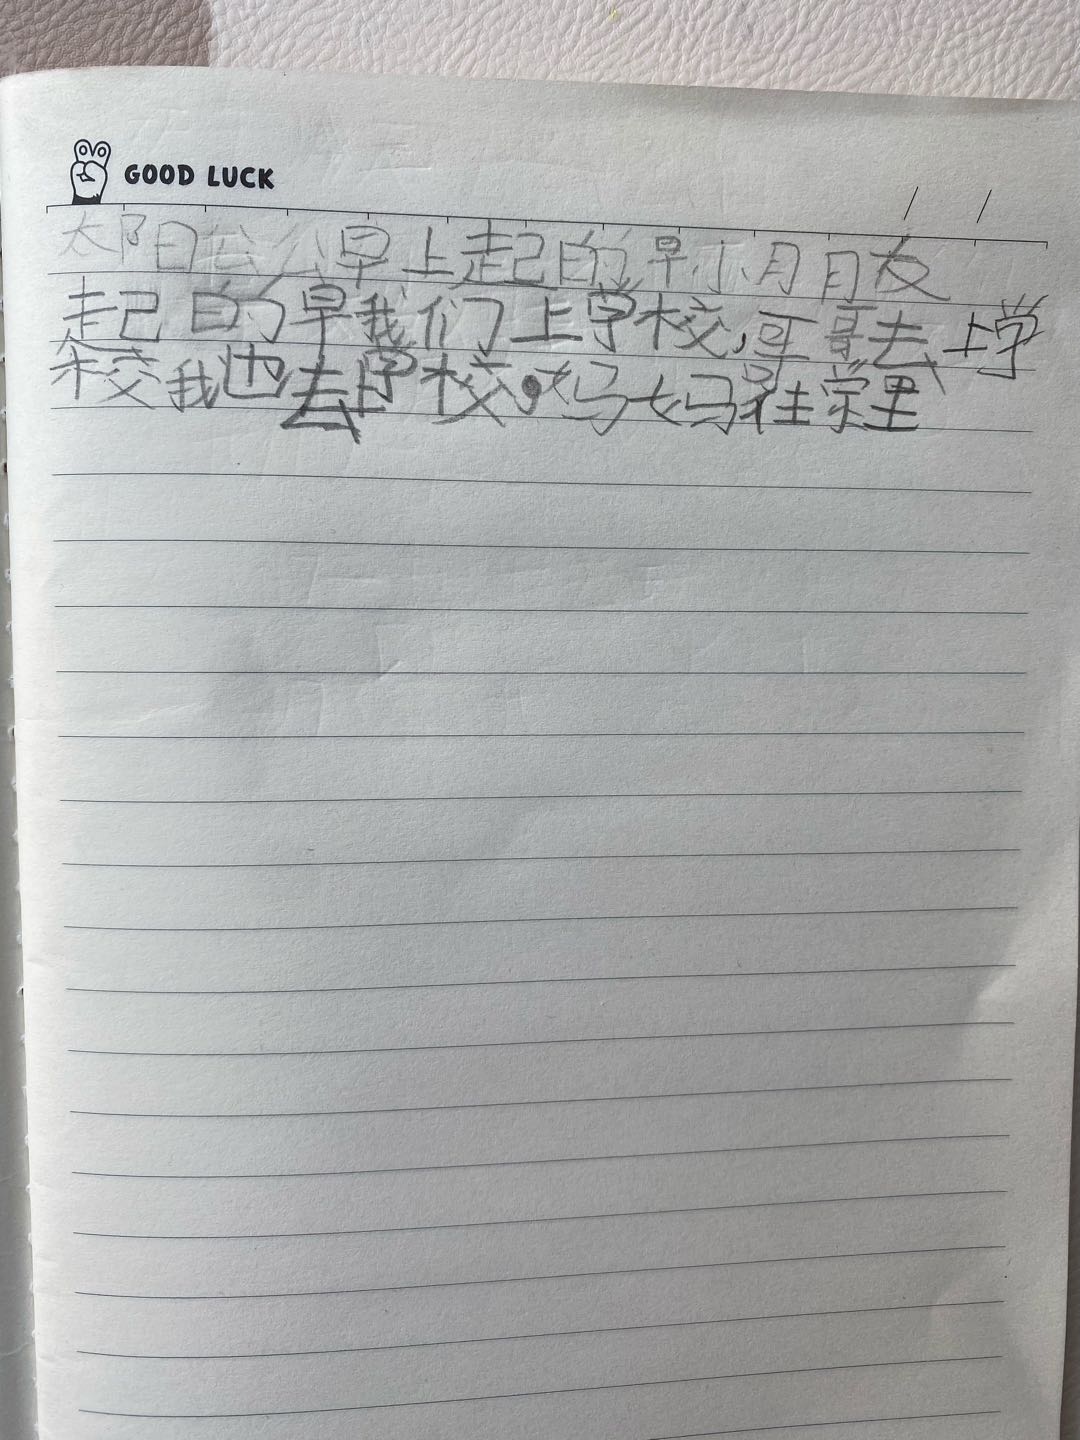 GOOD LUCK
太阳公公早上起的早小月月友
起的早我们上学校,哥哥去上学
校我也去上学校。妈妈在家里